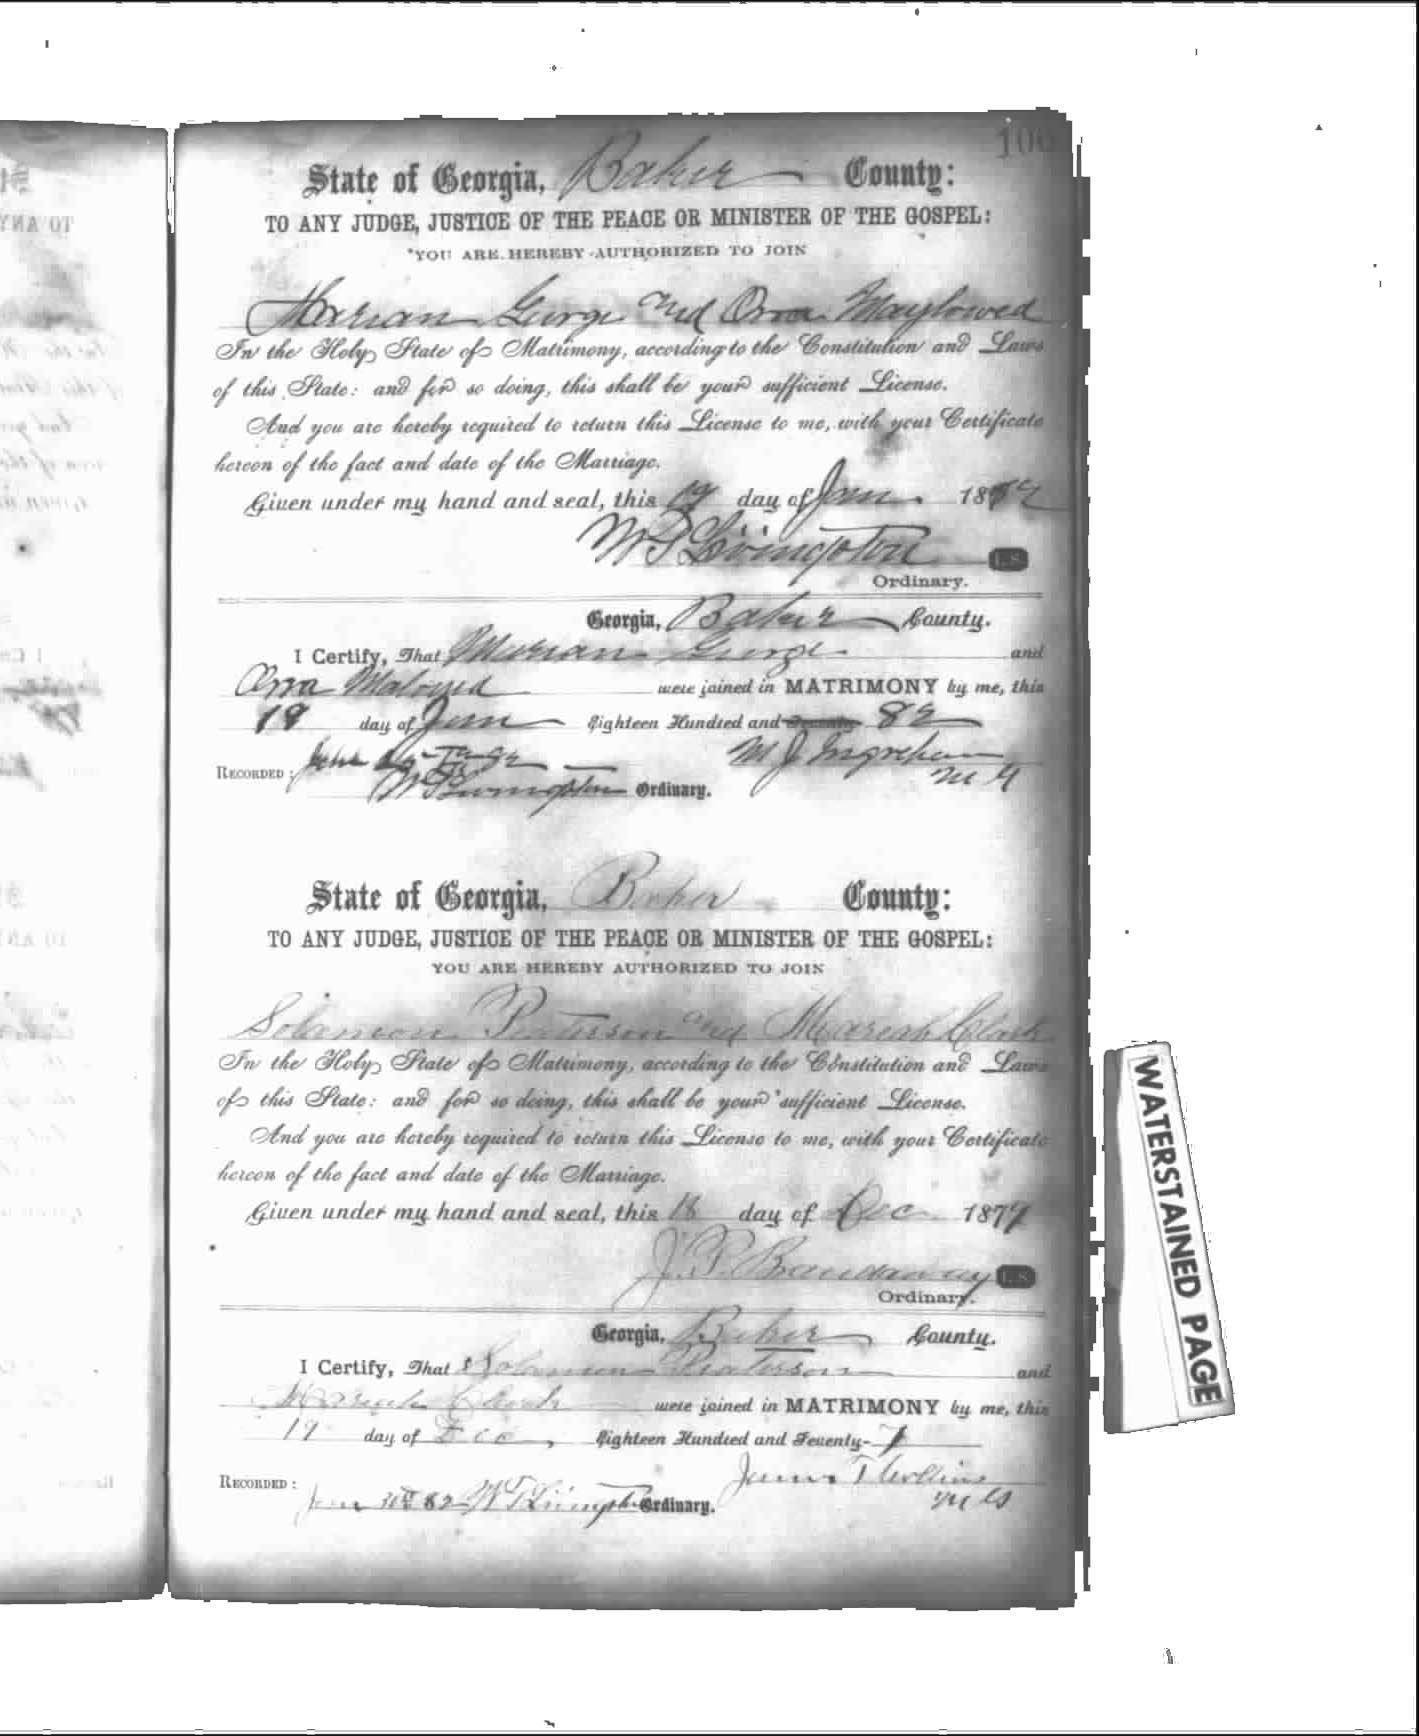 100
State of Georgia, Baker County:
TO ANY JUDGE, JUSTICE OF THE PEACE OR MINISTER OF THE GOSPEL:
YOU ARE HEREBY AUTHORIZED TO JOIN
Marian George and Orra Maylowed
In the Holy State of Matrimony, according to the Constitution and Laws
of this State: and for so doing, this shall be your sufficient License.
And you are hereby required to return this License to me, with your Certificate
hereon of the fact and date of the Marriage.
Given under my hand and seal, this 19 day of Jan 1882
W T Livingston L.S.
Ordinary.
Georgia, Baker County.
I Certify, That Marian George and
Orra were joined in MATRIMONY by me, this
19 day of Jan Eighteen Hundred and Seventy 82
M J
RECORDED: M G
W T Livingston Ordinary.
State of Georgia, Baker County:
TO ANY JUDGE, JUSTICE OF THE PEACE OR MINISTER OF THE GOSPEL:
YOU ARE HEREBY AUTHORIZED TO JOIN
Solamon Peaterson and Mariah Clark
In the Holy State of Matrimony, according to the Constitution and Laws
of this State: and for so doing, this shall be your sufficient License.
And you are hereby required to return this License to me, with your Certificate
hereon of the fact and date of the Marriage.
Given under my hand and seal, this 18 day of Dec 1877
J. P. L.S.
Ordinary.
Georgia, Baker County.
I Certify, That Solamon Peaterson and
Mariah Clark were joined in MATRIMONY by me, this
19 day of Dec, Eighteen Hundred and Seventy-7
James T Collins
RECORDED: M G
Jan 82 W T Livingston Ordinary.
WATERSTAINED PAGE